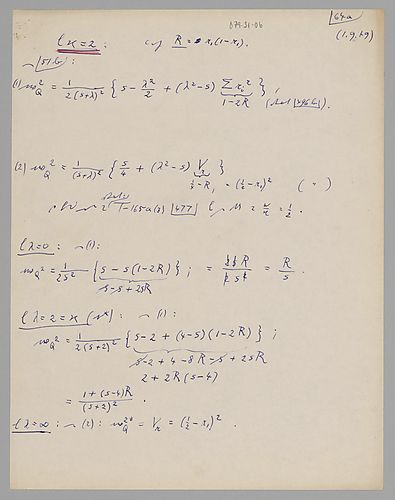 079-31-06
64-a
(1.9.69)
κ=2 : R = r₁(1-r₁).
51-b :
(1) w_Q² = 1/2(s+λ)² { s - λ²/2 + (λ²-s) Σrᵢ² } ,
1-2R
(2) w_Q² = 1/(s+λ)² { s/4 + (λ²-s) V_r }
½-R, = (½-r₁)² ( " )
T-165-a(3) 477 = ½ .
λ=0 : (1):
w_Q² = 1/2s² { s - s(1-2R) } ; = R/s .
s-s+2sR
λ=2=κ : (1):
w_Q² = 1/2(s+2)² { s-2 + (4-s)(1-2R) } ;
s-2+4-8R-s+2sR
2+2R(s-4)
= 1+(s-4)R/(s+2)² .
λ=∞ : (2): w_Q² = V_r = (½-r₁)² .